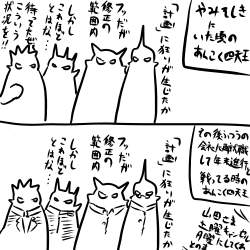 やみそしきに
いた頃の
あんこく四天王
「計画」に狂いが生じたか
フッだが
修正の
範囲内
しかし
これほど
とはな…
待ってたぜェ
こういう
状況を!!
その後ふつうの
会社に転職
して年末進行と
戦ってる時の
あんこく四天王
「計画」に狂いが生じたか
フッだが
修正の
範囲内
しかし
これほど
とはな…
山田さん
土曜
月曜